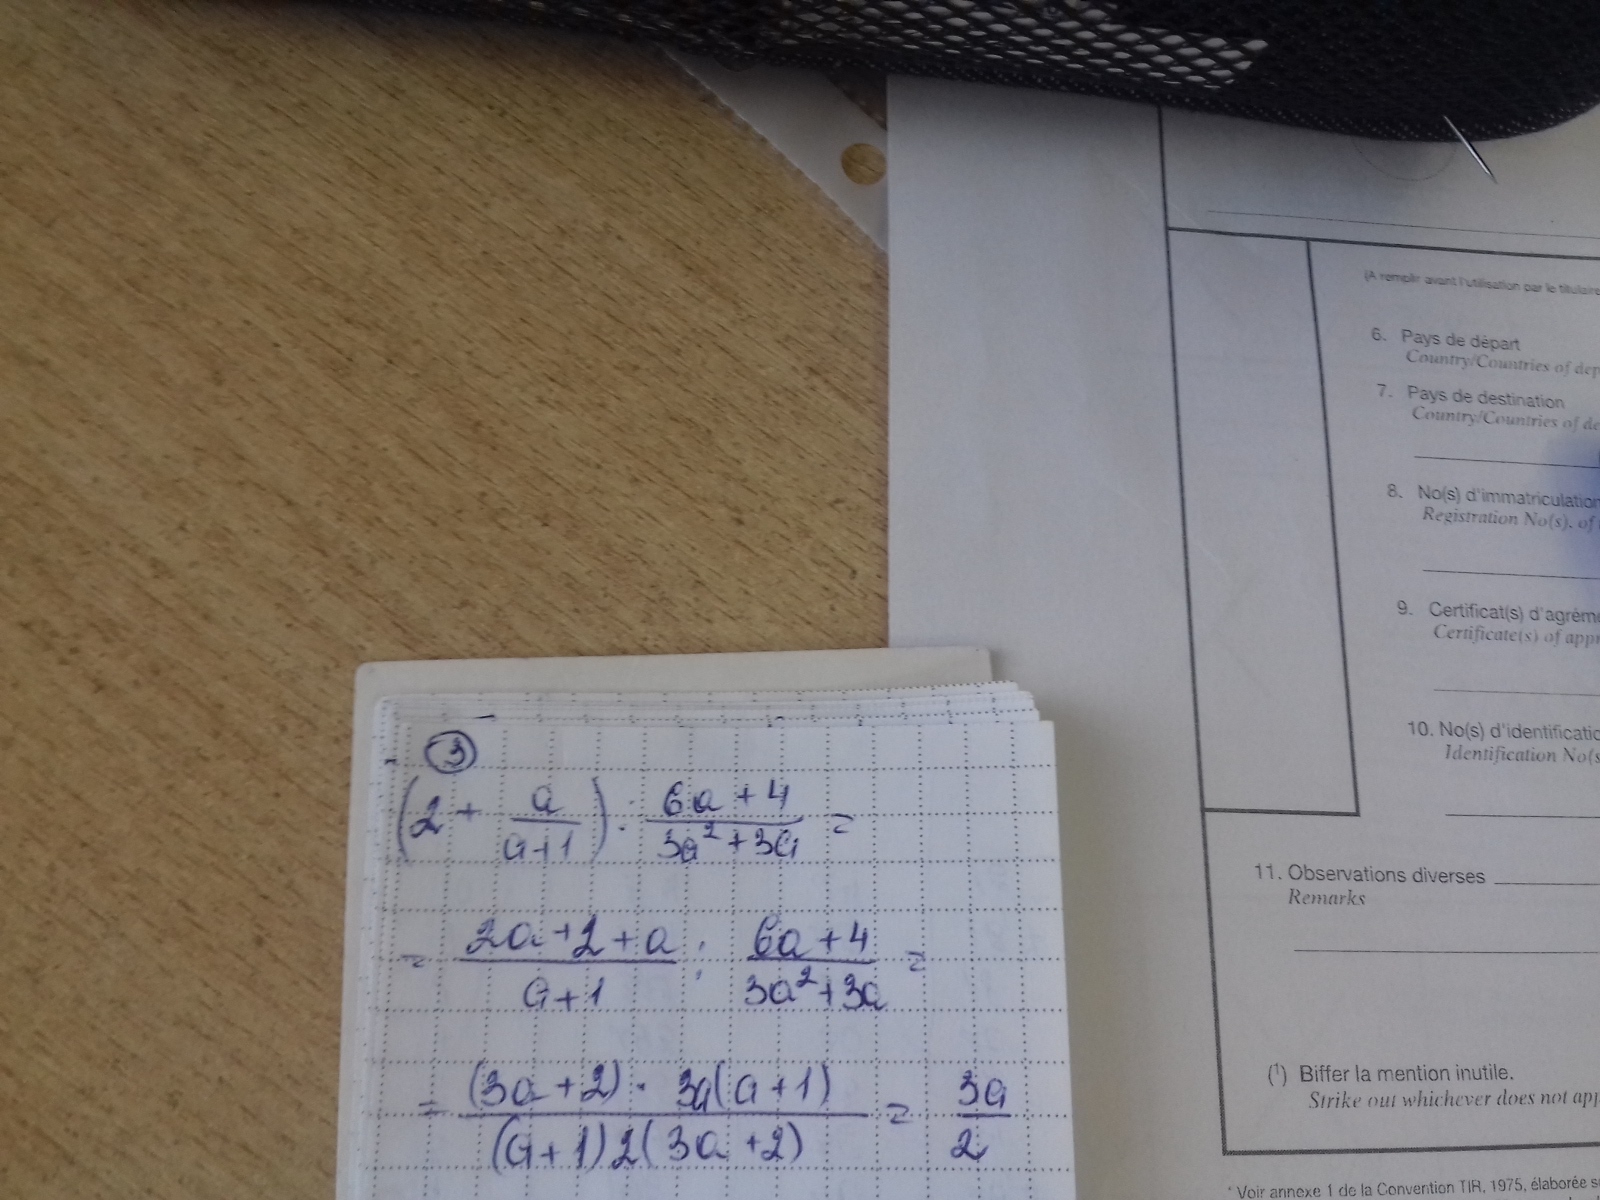 (A remplir avant l'utilisation par le titulaire
6. Pays de départ
Country/Countries of dep
7. Pays de destination
Country/Countries of de
8. No(s) d'immatriculation
Registration No(s). of
9. Certificat(s) d'agréme
Certificate(s) of appr
10. No(s) d'identificatio
Identification No(s
11. Observations diverses
Remarks
(¹) Biffer la mention inutile.
Strike out whichever does not app
* Voir annexe 1 de la Convention TIR, 1975, élaborée s
3
(2 + a/(a+1)) : (6a+4)/(3a²+3a) =
= (2a+2+a)/(a+1) : (6a+4)/(3a²+3a) =
= ((3a+2)·3a(a+1))/((a+1)2(3a+2)) = 3a/2